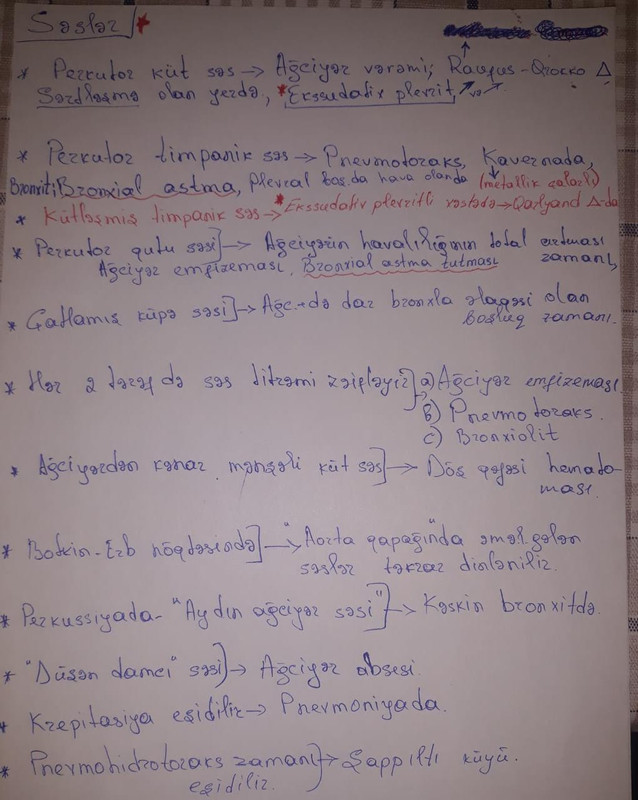 Səslər *
* Perkutor küt səs → Ağciyər vərəmi; Rauxfus-Qrokko Δ
Sərtləşmə olan yerdə, *Ekssudativ plevrit, və
* Perkutor timpanik səs → Pnevmotoraks, Kavernada,
Bronxit; Bronxial astma, Plevral boş.da hava olanda (metallik çalarlı)
* Kütləşmiş timpanik səs → *Ekssudativ plevritli xəstədə → Qarlyand Δ-da
* Perkutor qutu səsi] → Ağciyərin havalılığının total artması zamanı,
Ağciyər emfizeması, Bronxial astma tutması
* Çatlamış küpə səsi] → Ağc.-də dar bronxla əlaqəsi olan
boşluq zamanı.
* Hər 2 tərəfdə səs titrəmi zəifləyir] → a) Ağciyər emfizeması.
b) Pnevmotoraks.
c) Bronxiolit
* Ağciyərdən kənar mənşəli küt səs] → Döş qəfəsi hemato-
ması.
* Botkin-Erb nöqtəsində] → "Aorta qapağı"nda əmələ gələn
səslər təkrar dinlənilir.
* Perkussiyada - "Aydın ağciyər səsi"] → Kəskin bronxitdə.
* "Düşən damcı" səsi] → Ağciyər absesi.
* Krepitasiya eşidilir → Pnevmoniyada.
* Pnevmohidrotoraks zamanı] → Şappıltı küyü.
eşidilir.